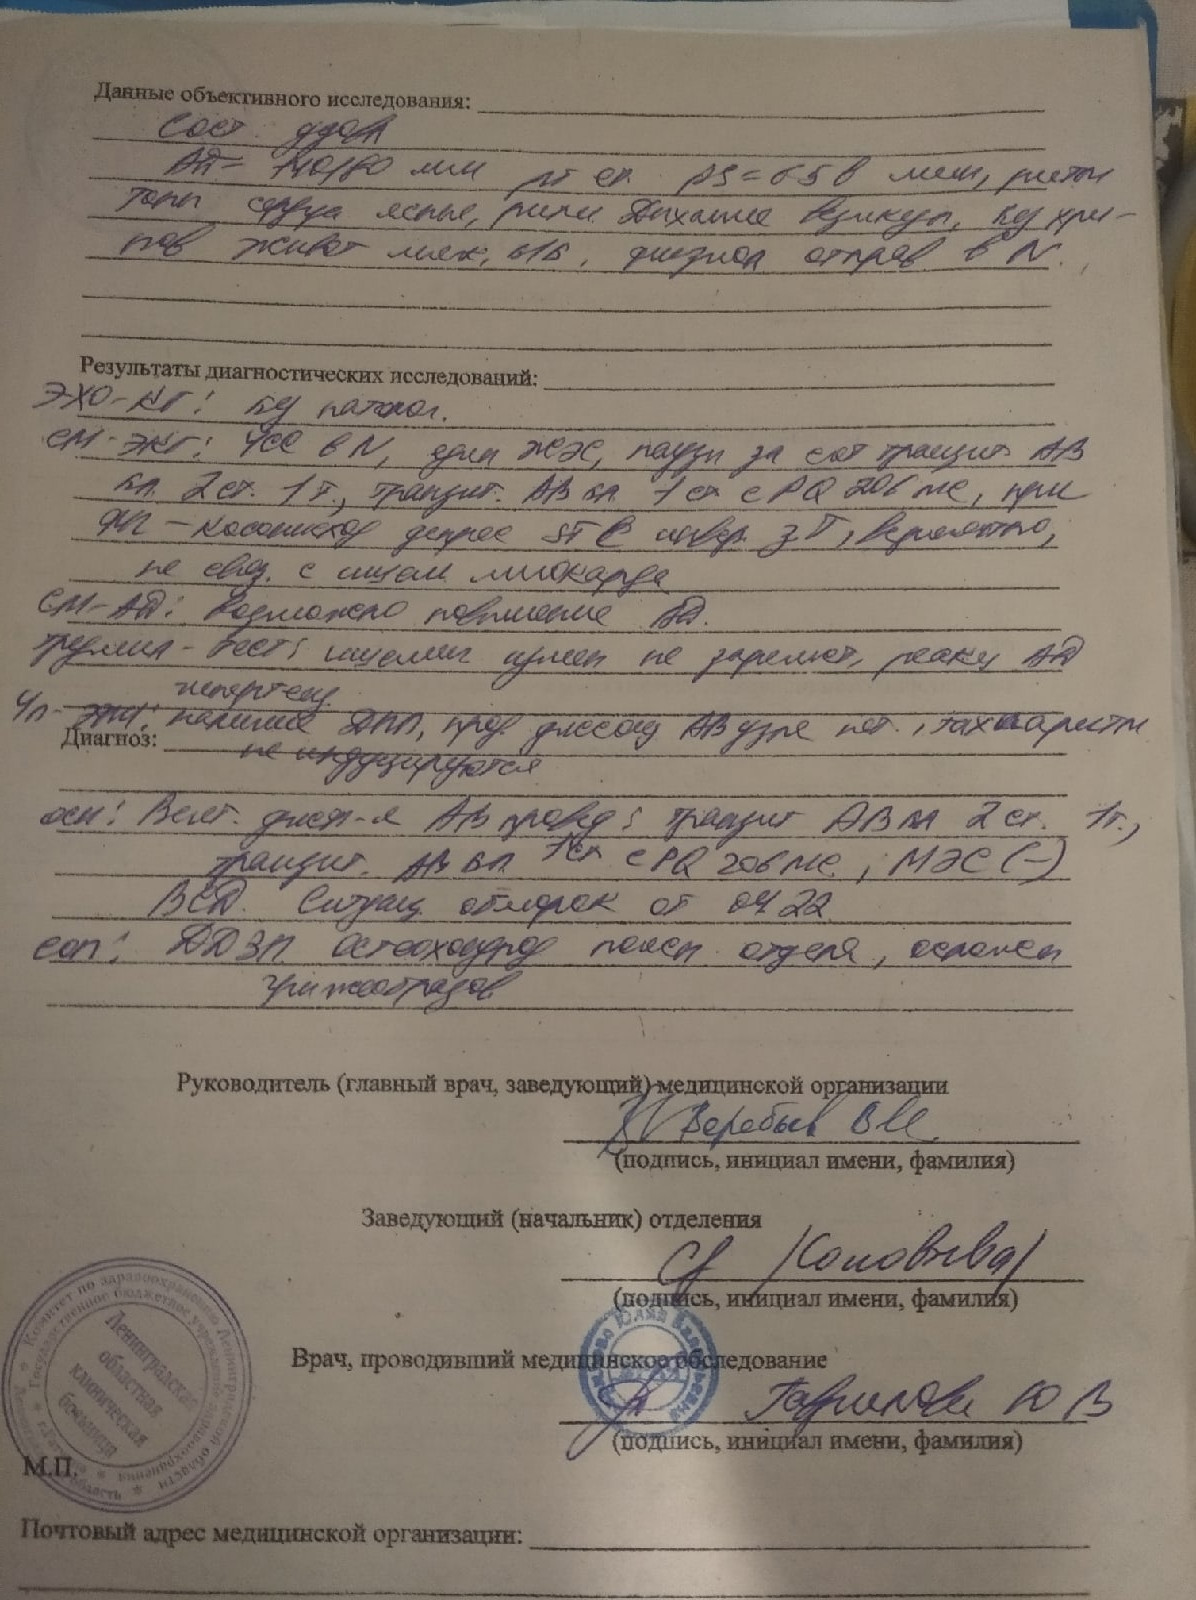 Данные объективного исследования:
Сост удовл
АД= 140/80 мм рт ст. PS=65 в мин, ритм
Тоны сердца ясные, ритм Дыхание везикул, без хри-
пов живот мягк, б/б, физиол отправ в N.
Результаты диагностических исследований:
ЭХО-КГ: без патолог.
СМ-ЭКГ: ЧСС в N, един ЖЭС, паузы за сет транзит АВ
бл. 2 ст. 1 т., транзит. АВ бл 1 ст с PQ 206 мс, при
депрес ST с инвер з. T, вероятно,
не связ. с ишем миокарда
СМ-АД: возможно повышение АД.
тредмил-тест: ишемич измен не зарегист, реакц АД
гипертенз
ЧП- наличие ДПП, прод диссоц АВ узла нет, тахиаритм
Диагноз:
не индуцируются
осн: Вегет. дисф-я АВ провед: транзит АВ бл 2 ст. 1 т.,
транзит. АВ бл 1 ст с PQ 206 мс; МЭС (-)
ВСД. Ситуац. обморок от 04 22
соп: ДДЗП. остеохондроз поясн отдела, осложн
грыжеобразов
Руководитель (главный врач, заведующий) медицинской организации
(подпись, инициал имени, фамилия)
Заведующий (начальник) отделения
/Соловьева/
(подпись, инициал имени, фамилия)
Врач, проводивший медицинское обследование
Гаврилова Ю В
(подпись, инициал имени, фамилия)
Комитет по здравоохранению Ленинградской области
Государственное бюджетное учреждение здравоохранения
Ленинградская
областная
клиническая
больница
М.П.
Почтовый адрес медицинской организации: